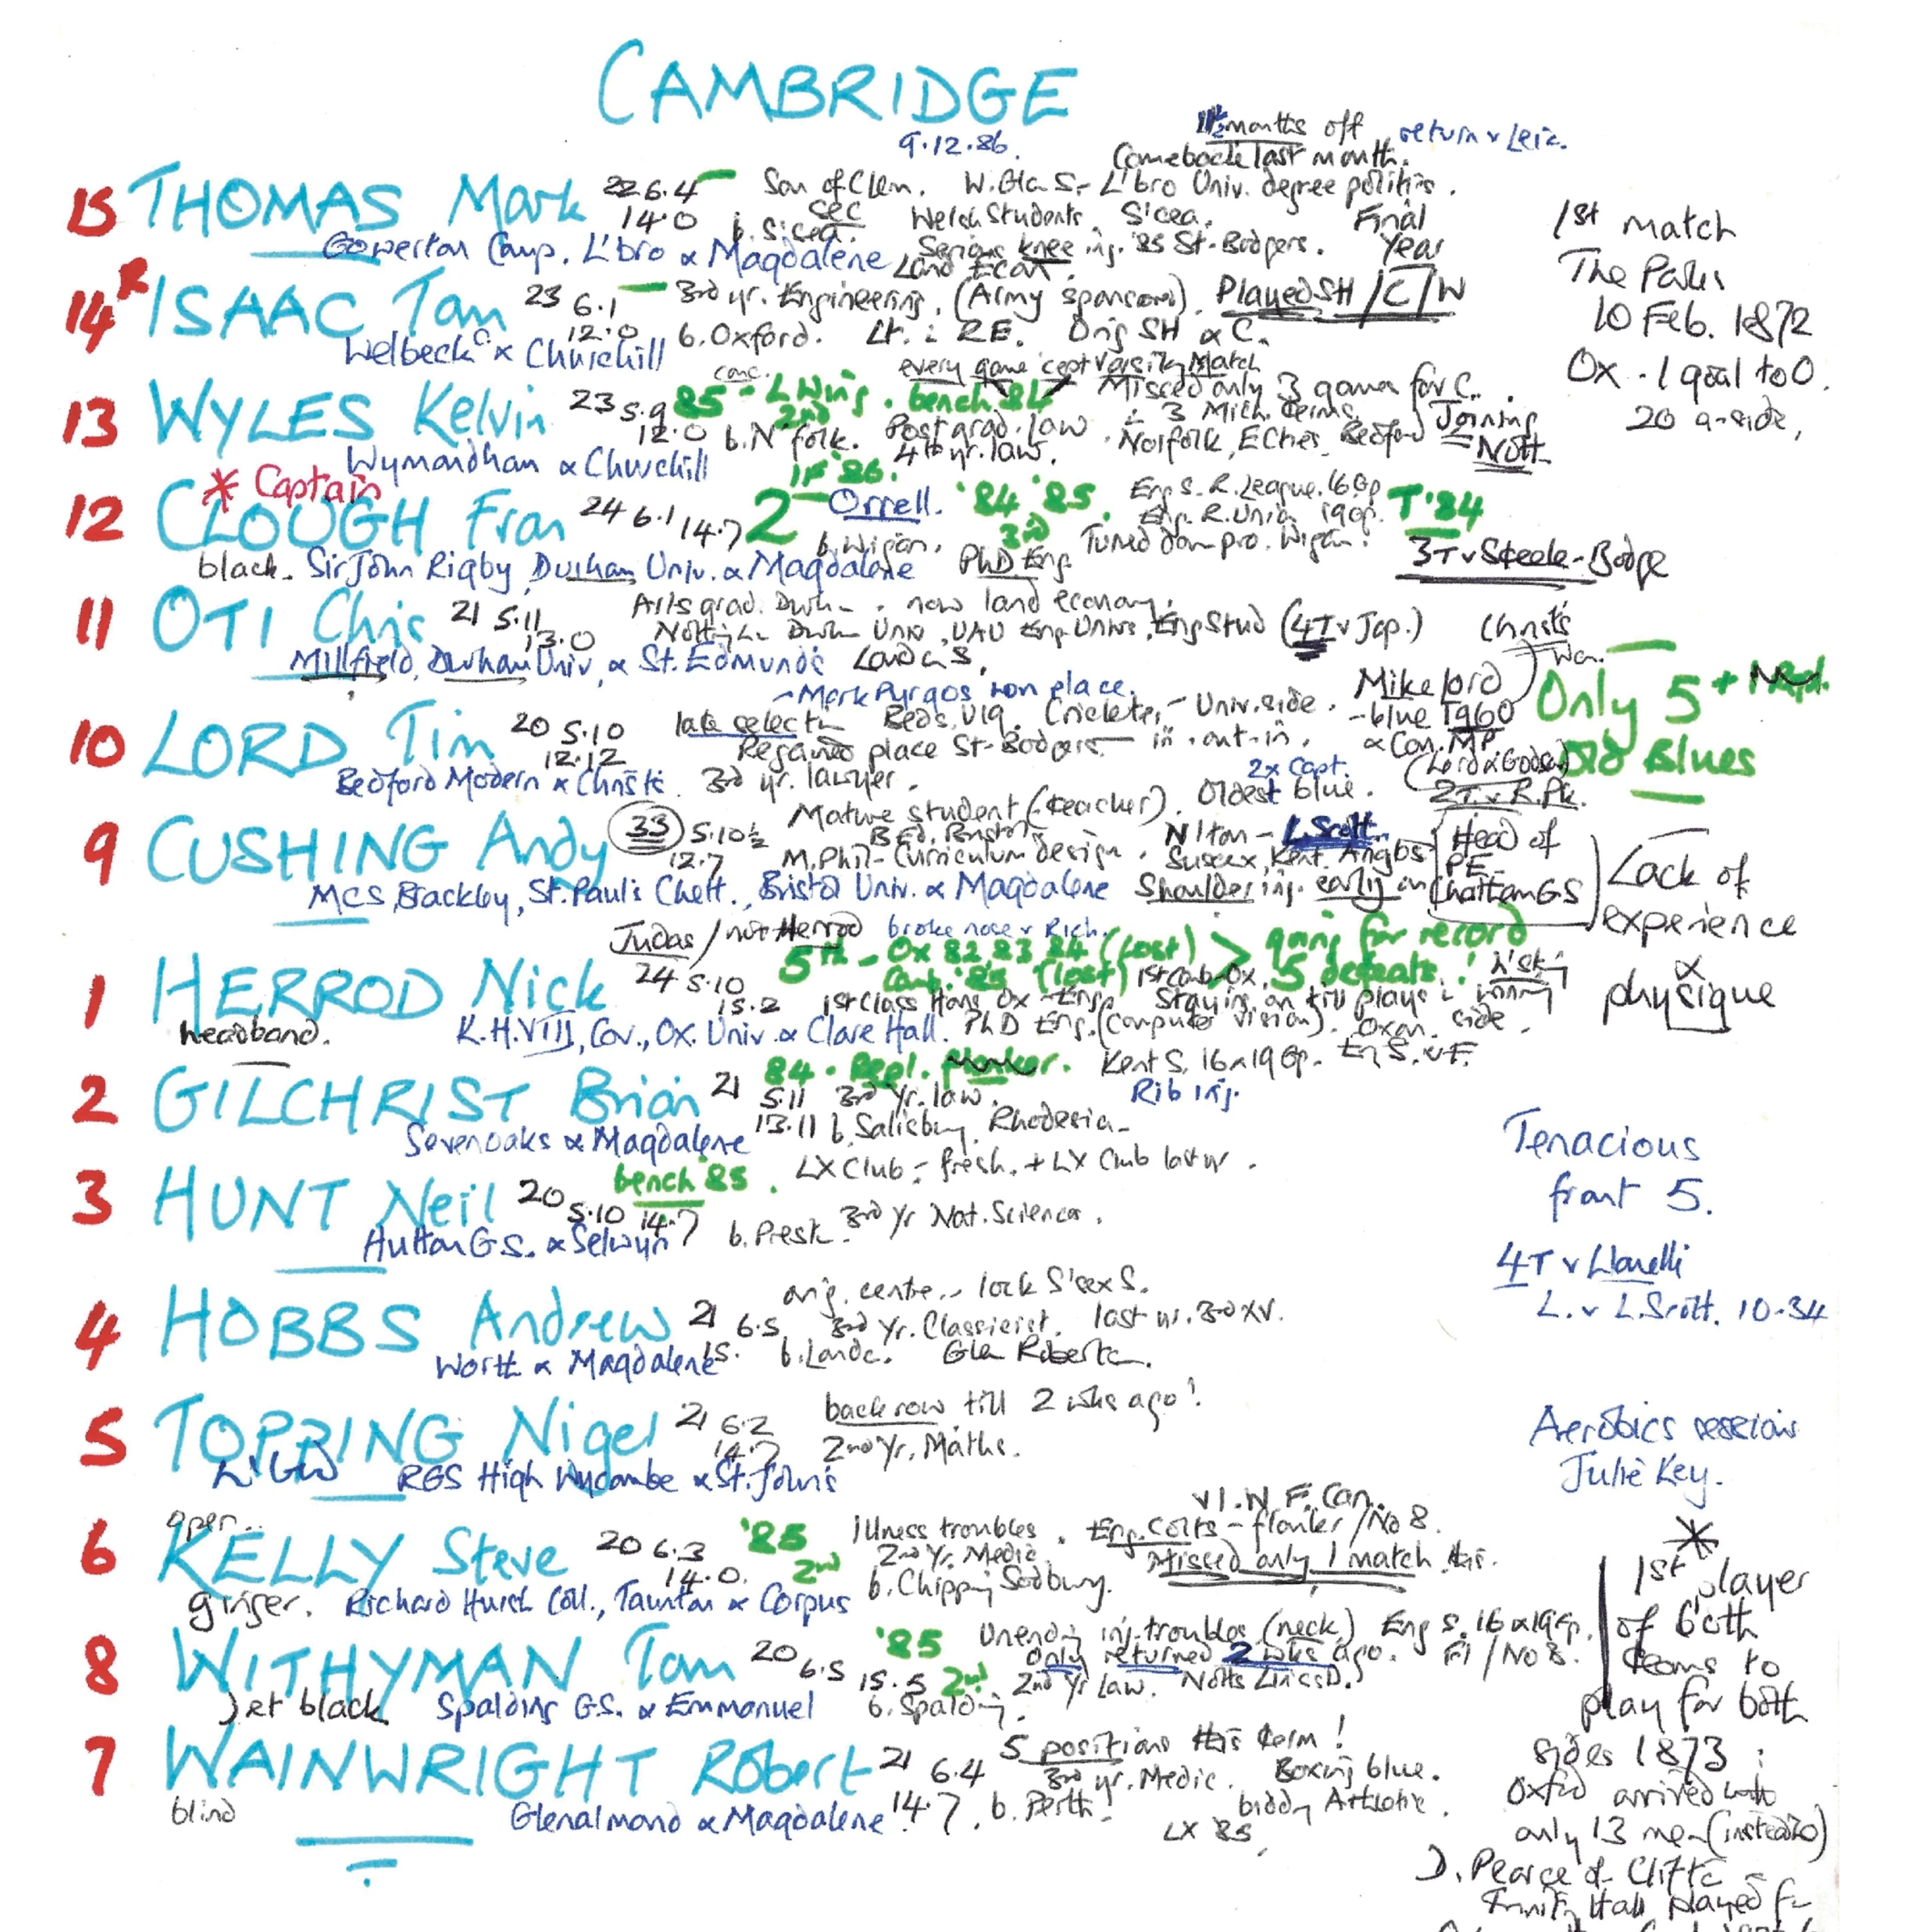 CAMBRIDGE
9.12.86.
months off return v Leic.
Comeback last month.
15 THOMAS Mark 22 6.4 Son of Clem. W. Gla. S. - L'bro Univ. degree politics.
14.0 b. S'cea. sec Welsh Students. S'cea. Final Year
Gowerton Comp. L'bro & Magdalene Serious knee inj. '85 St-Bodgers.
Land Econ.
1st match
The Parks
10 Feb. 1872
Ox - 1 goal to 0.
20 a-side,
14 R ISAAC Tom 23 6.1 3rd yr. Engineering. (Army sponsored). Played SH / C / W
12.0 b. Oxford. Lt. in RE. Orig SH & C.
Welbeck C. & Churchill
every game 'cept Varsity Match
13 WYLES Kelvin 23 5.9 85 - L Wing. bench 84 Missed only 3 games for C.
12.0 2nd b. N'folk. Postgrad. law. in 3 Mich. terms. Joining Nott
Wymondham & Churchill 4th yr. law. Norfolk, E Cties, Bedford
* Captain
12 CLOUGH Fran 24 6.1 14.7 2 1F '86. Orrell. '84 '85. Eng S. R. League. 16 Gp T '84
3rd Eng. R. Union 19 Gp.
b. Wigan. PhD Eng. Turned down pro. Wigan!
3T v Steele-Bodge
black. Sir John Rigby, Durham Univ. & Magdalene
11 OTI Chris 21 5.11 Arts grad. Durh. now land economy.
13.0 Durh Univ, UAU Eng. Univs, Eng Stud (4T v Jap.)
Millfield, Durham Univ, & St. Edmund's
Christ's
Only 5 + Repl.
Old Blues
- Mark Pyrgos won place.
10 LORD Tim 20 5.10 late select Beds. U19. Cricketer - Univ. side. Mike Lord
12.12 Regained place St-Bodgers - in-out-in. - blue 1960
Bedford Modern & Christ's 3rd yr. lawyer. & Con. MP.
2T v R. Pk.
2x Capt.
9 CUSHING Andy 33 5.10½ Mature student (teacher). Oldest blue.
12.7 B Ed. Bristol N'ton - L. Scott Head of PE
M. Phil - Curriculum design. Sussex, Kent, Chatham GS
MCS, Brackley, St. Paul's Chelt., Bristol Univ. & Magdalene Shoulder inj. early on
Lack of
experience
&
physique
Judas / not Herrod broke nose v Rich.
1 HERROD Nick 24 5.10 5th - Ox 82, 83 84 (lost) > going for record
15.2 Camb. '85 (lost) 5 defeats!
1st Class Hons Ox - Eng. Staying on till plays in winning side.
headband. K.H. VIII, Cov., Ox. Univ. & Clare Hall. PhD Eng. (Computer vision). Oxon.
2 GILCHRIST Brian 21 84 - Repl. flanker. Kent S. 16 & 19 Gp. En S. v F.
5.11 3rd yr. law. Rib inj.
13.11 b. Salisbury, Rhodesia
Sevenoaks & Magdalene
Tenacious
front 5.
3 HUNT Neil 20 bench '85. LX Club - fresh. + LX Club last yr.
5.10 14.7 b. Prest. 3rd Yr Nat. Sciences.
Hutton G S. & Selwyn
4T v Llanelli
L. v L. Scott. 10-34
4 HOBBS Andrew 21 6.5 orig. centre - lock S'sex S.
15. 3rd Yr. Classicist. last yr. 3rd XV.
Worth & Magdalene b. Lond.
5 TOPPING Nigel 21 6.2 back row till 2 wks ago!
14.7 2nd Yr. Maths.
RGS High Wycombe & St. John's
Aerobics sessions
Julie Key.
open
6 KELLY Steve 20 6.3 '85 Illness troubles. Eng. Colts - flanker / No 8. v I. W F. Can.
14.0. 2nd 2nd Yr. Medic. Missed only 1 match this.
ginger. Richard Huish Coll., Taunton & Corpus b. Chipping Sodbury.
8 WITHYMAN Tom 20 6.5 '85 Unending inj. troubles (neck) Eng S. 16 & 19 Gp.
15.5 2nd Only returned 2 wks ago. Fl / No 8.
2nd Yr Law. Notts Lincs D.
jet black Spalding G.S. & Emmanuel b. Spalding.
7 WAINWRIGHT Robert 21 6.4 5 positions this term!
3rd yr. Medic. Boxing blue.
blind Glenalmond & Magdalene 14.7. b. Perth!
LX 85,
*
1st player
of both
teams to
play for both
sides 1873:
Oxford arrived with
only 13 men (instead 20)
D. Pearce of Clifton
Trinity Hall played for